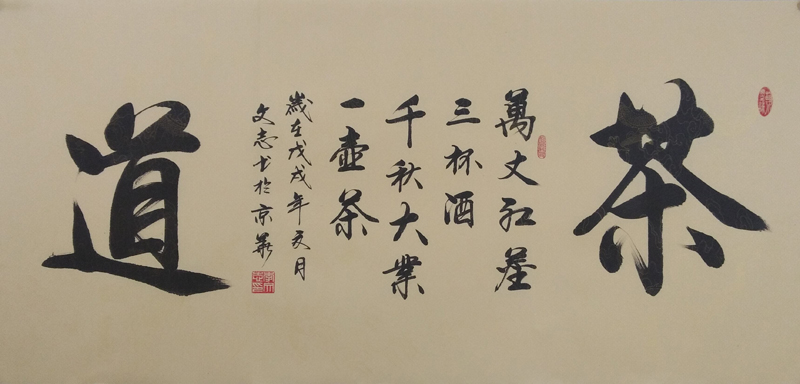 茶
萬丈红塵
三杯酒
千秋大業
一壺茶
歲在戊戌年夏月
文志书於京華
道